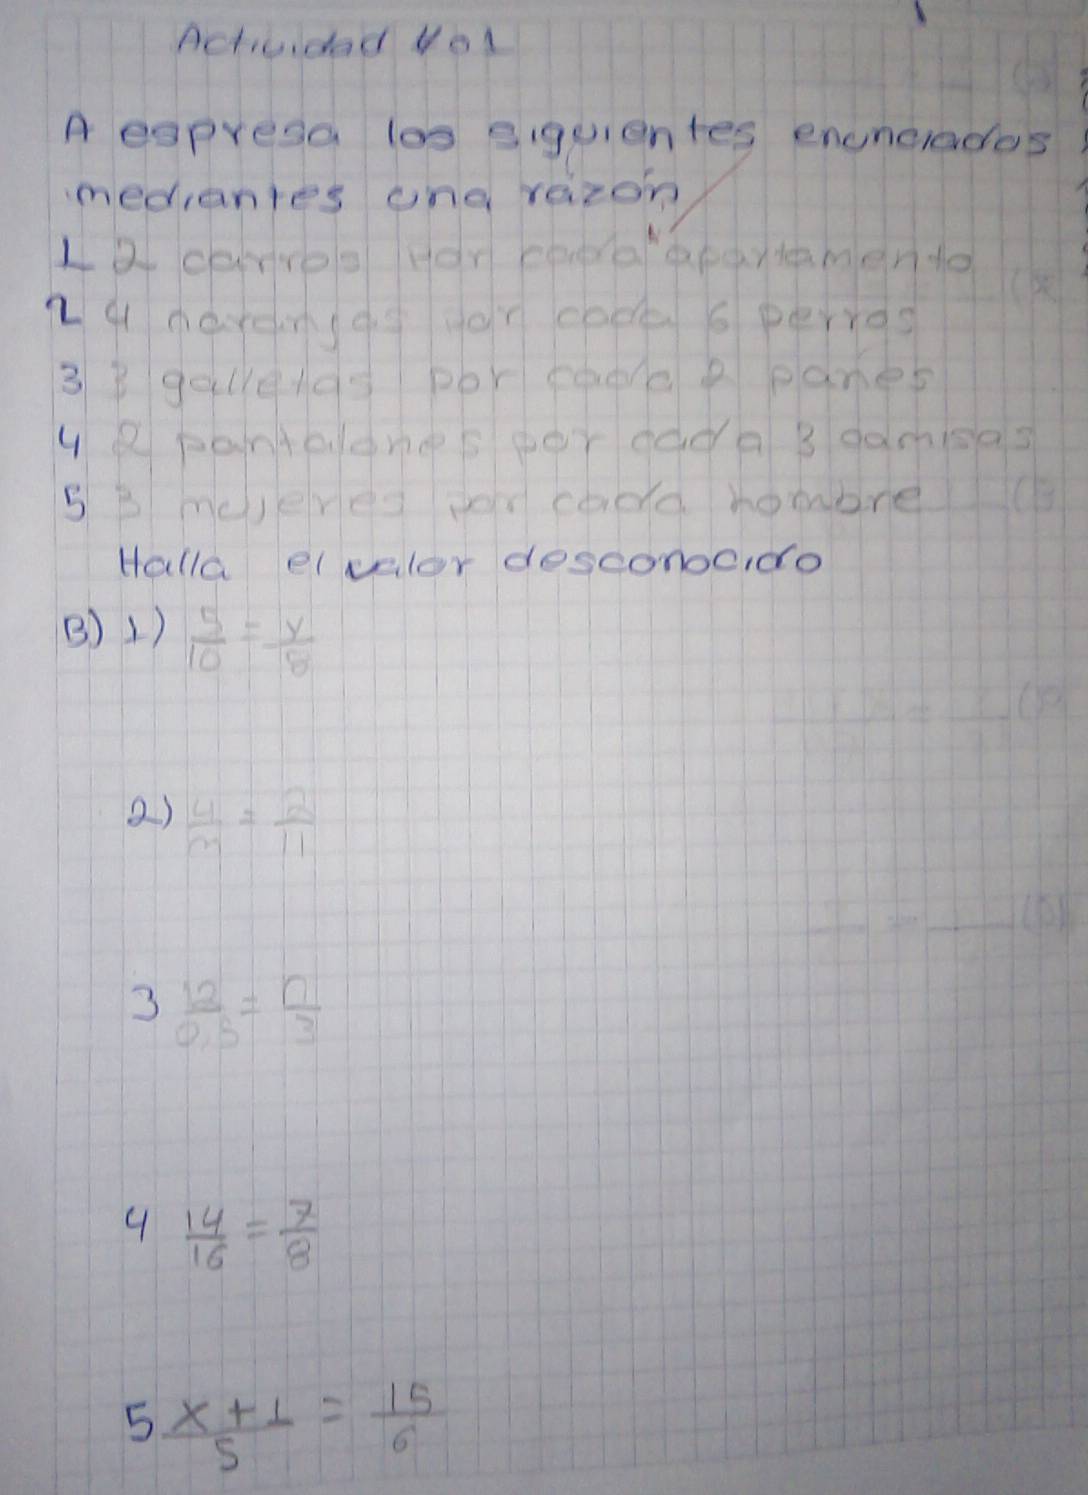 Actividad #01
A espresa los siguientes enunciados
mediantes una razón
1 2 carros por cada apartamento
2 4 naranjas por cada 6 perros
3 3 galletas por cada 2 panes
4 2 pantalones por cada 3 camisas
5 3 mujeres por cada hombre
Halla el valor desconocido
B) 1) 5/10 = x/8
2) 4/3 = 2/
3 12/0,5 = n/3
4 14/16 = 7/8
5 x+1/5 = 15/6